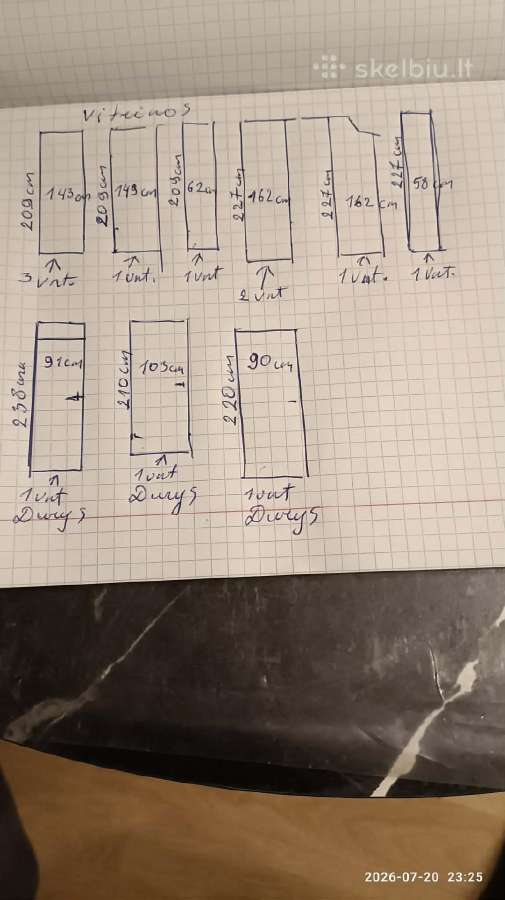 skelbiu.lt
Vitrinos
209cm 143cm
3 vnt.
209cm 149cm
1 vnt.
209cm 62cm
1 vnt
227cm 162cm
2 vnt
227cm 162cm
1 vnt.
227cm 58cm
1 vnt.
238cm 91cm
1 vnt
Durys
210cm 103cm
1 vnt
Durys
220cm 90cm
1 vnt
Durys
2026-07-20 23:25